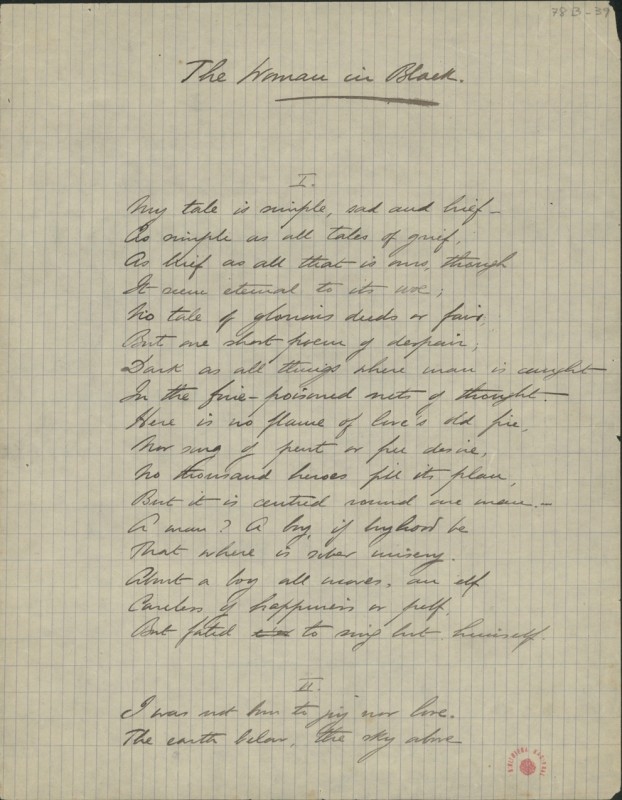 78B-39
The Woman in Black.
I.
My tale is simple, sad and brief –
As simple as all tales of grief,
As brief as all that is ours, though
It seem eternal to its woe;
No tale of glorious deeds or fair,
But one short poem of despair,
Dark as all things where man is caught
In the fine-poisoned nets of thought.
Here is no flame of love's old fire,
Nor song of pent or free desire,
No thousand heroes fill its plan,
But it is centred round one man. –
A man? A boy, if boyhood be
That where is sober misery.
About a boy all moves, an elf
Careless of happiness or pelf,
But fated to sing but himself.
II.
I was not born to joy nor love.
The earth below, the sky above
BIBLIOTECA NACIONAL